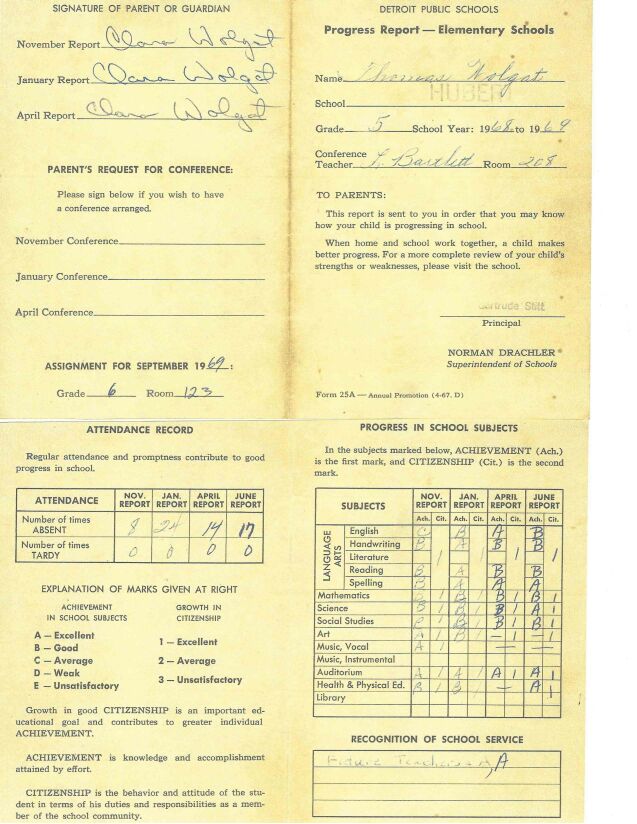 SIGNATURE OF PARENT OR GUARDIAN
November Report Clara Wolgat
January Report Clara Wolgat
April Report Clara Wolgat
PARENT'S REQUEST FOR CONFERENCE:
Please sign below if you wish to have
a conference arranged.
November Conference
January Conference
April Conference
ASSIGNMENT FOR SEPTEMBER 1969:
Grade 6 Room 123
DETROIT PUBLIC SCHOOLS
Progress Report — Elementary Schools
Name Thomas Wolgat
HUBER
School
Grade 5 School Year: 1968 to 1969
Conference
Teacher Bartlett Room 208
TO PARENTS:
This report is sent to you in order that you may know
how your child is progressing in school.
When home and school work together, a child makes
better progress. For a more complete review of your child's
strengths or weaknesses, please visit the school.
Gertrude Stitt
Principal
NORMAN DRACHLER
Superintendent of Schools
Form 25A — Annual Promotion (4-67, D)
ATTENDANCE RECORD
Regular attendance and promptness contribute to good
progress in school.
ATTENDANCE NOV. REPORT JAN. REPORT APRIL REPORT JUNE REPORT
Number of times ABSENT 8 24 14 17
Number of times TARDY 0 0 0 0
EXPLANATION OF MARKS GIVEN AT RIGHT
ACHIEVEMENT IN SCHOOL SUBJECTS
A — Excellent
B — Good
C — Average
D — Weak
E — Unsatisfactory
GROWTH IN CITIZENSHIP
1 — Excellent
2 — Average
3 — Unsatisfactory
Growth in good CITIZENSHIP is an important ed-
ucational goal and contributes to greater individual
ACHIEVEMENT.
ACHIEVEMENT is knowledge and accomplishment
attained by effort.
CITIZENSHIP is the behavior and attitude of the stu-
dent in terms of his duties and responsibilities as a mem-
ber of the school community.
PROGRESS IN SCHOOL SUBJECTS
In the subjects marked below, ACHIEVEMENT (Ach.)
is the first mark, and CITIZENSHIP (Cit.) is the second
mark.
SUBJECTS NOV. REPORT JAN. REPORT APRIL REPORT JUNE REPORT
Ach. Cit. Ach. Cit. Ach. Cit. Ach. Cit.
LANGUAGE ARTS
English C B A B
Handwriting B A B B
Literature 1 1 1 1
Reading B A B B
Spelling B A A A
Mathematics B 1 B 1 B 1 B 1
Science B 1 B 1 B 1 A 1
Social Studies 1 B 1 B 1 B 1
Art A 1 B 1 — 1 — 1
Music, Vocal A 1 — —
Music, Instrumental
Auditorium A 1 A 1 A 1 A 1
Health & Physical Ed. B 1 B 1 — A 1
Library
RECOGNITION OF SCHOOL SERVICE
Future Teachers A, A